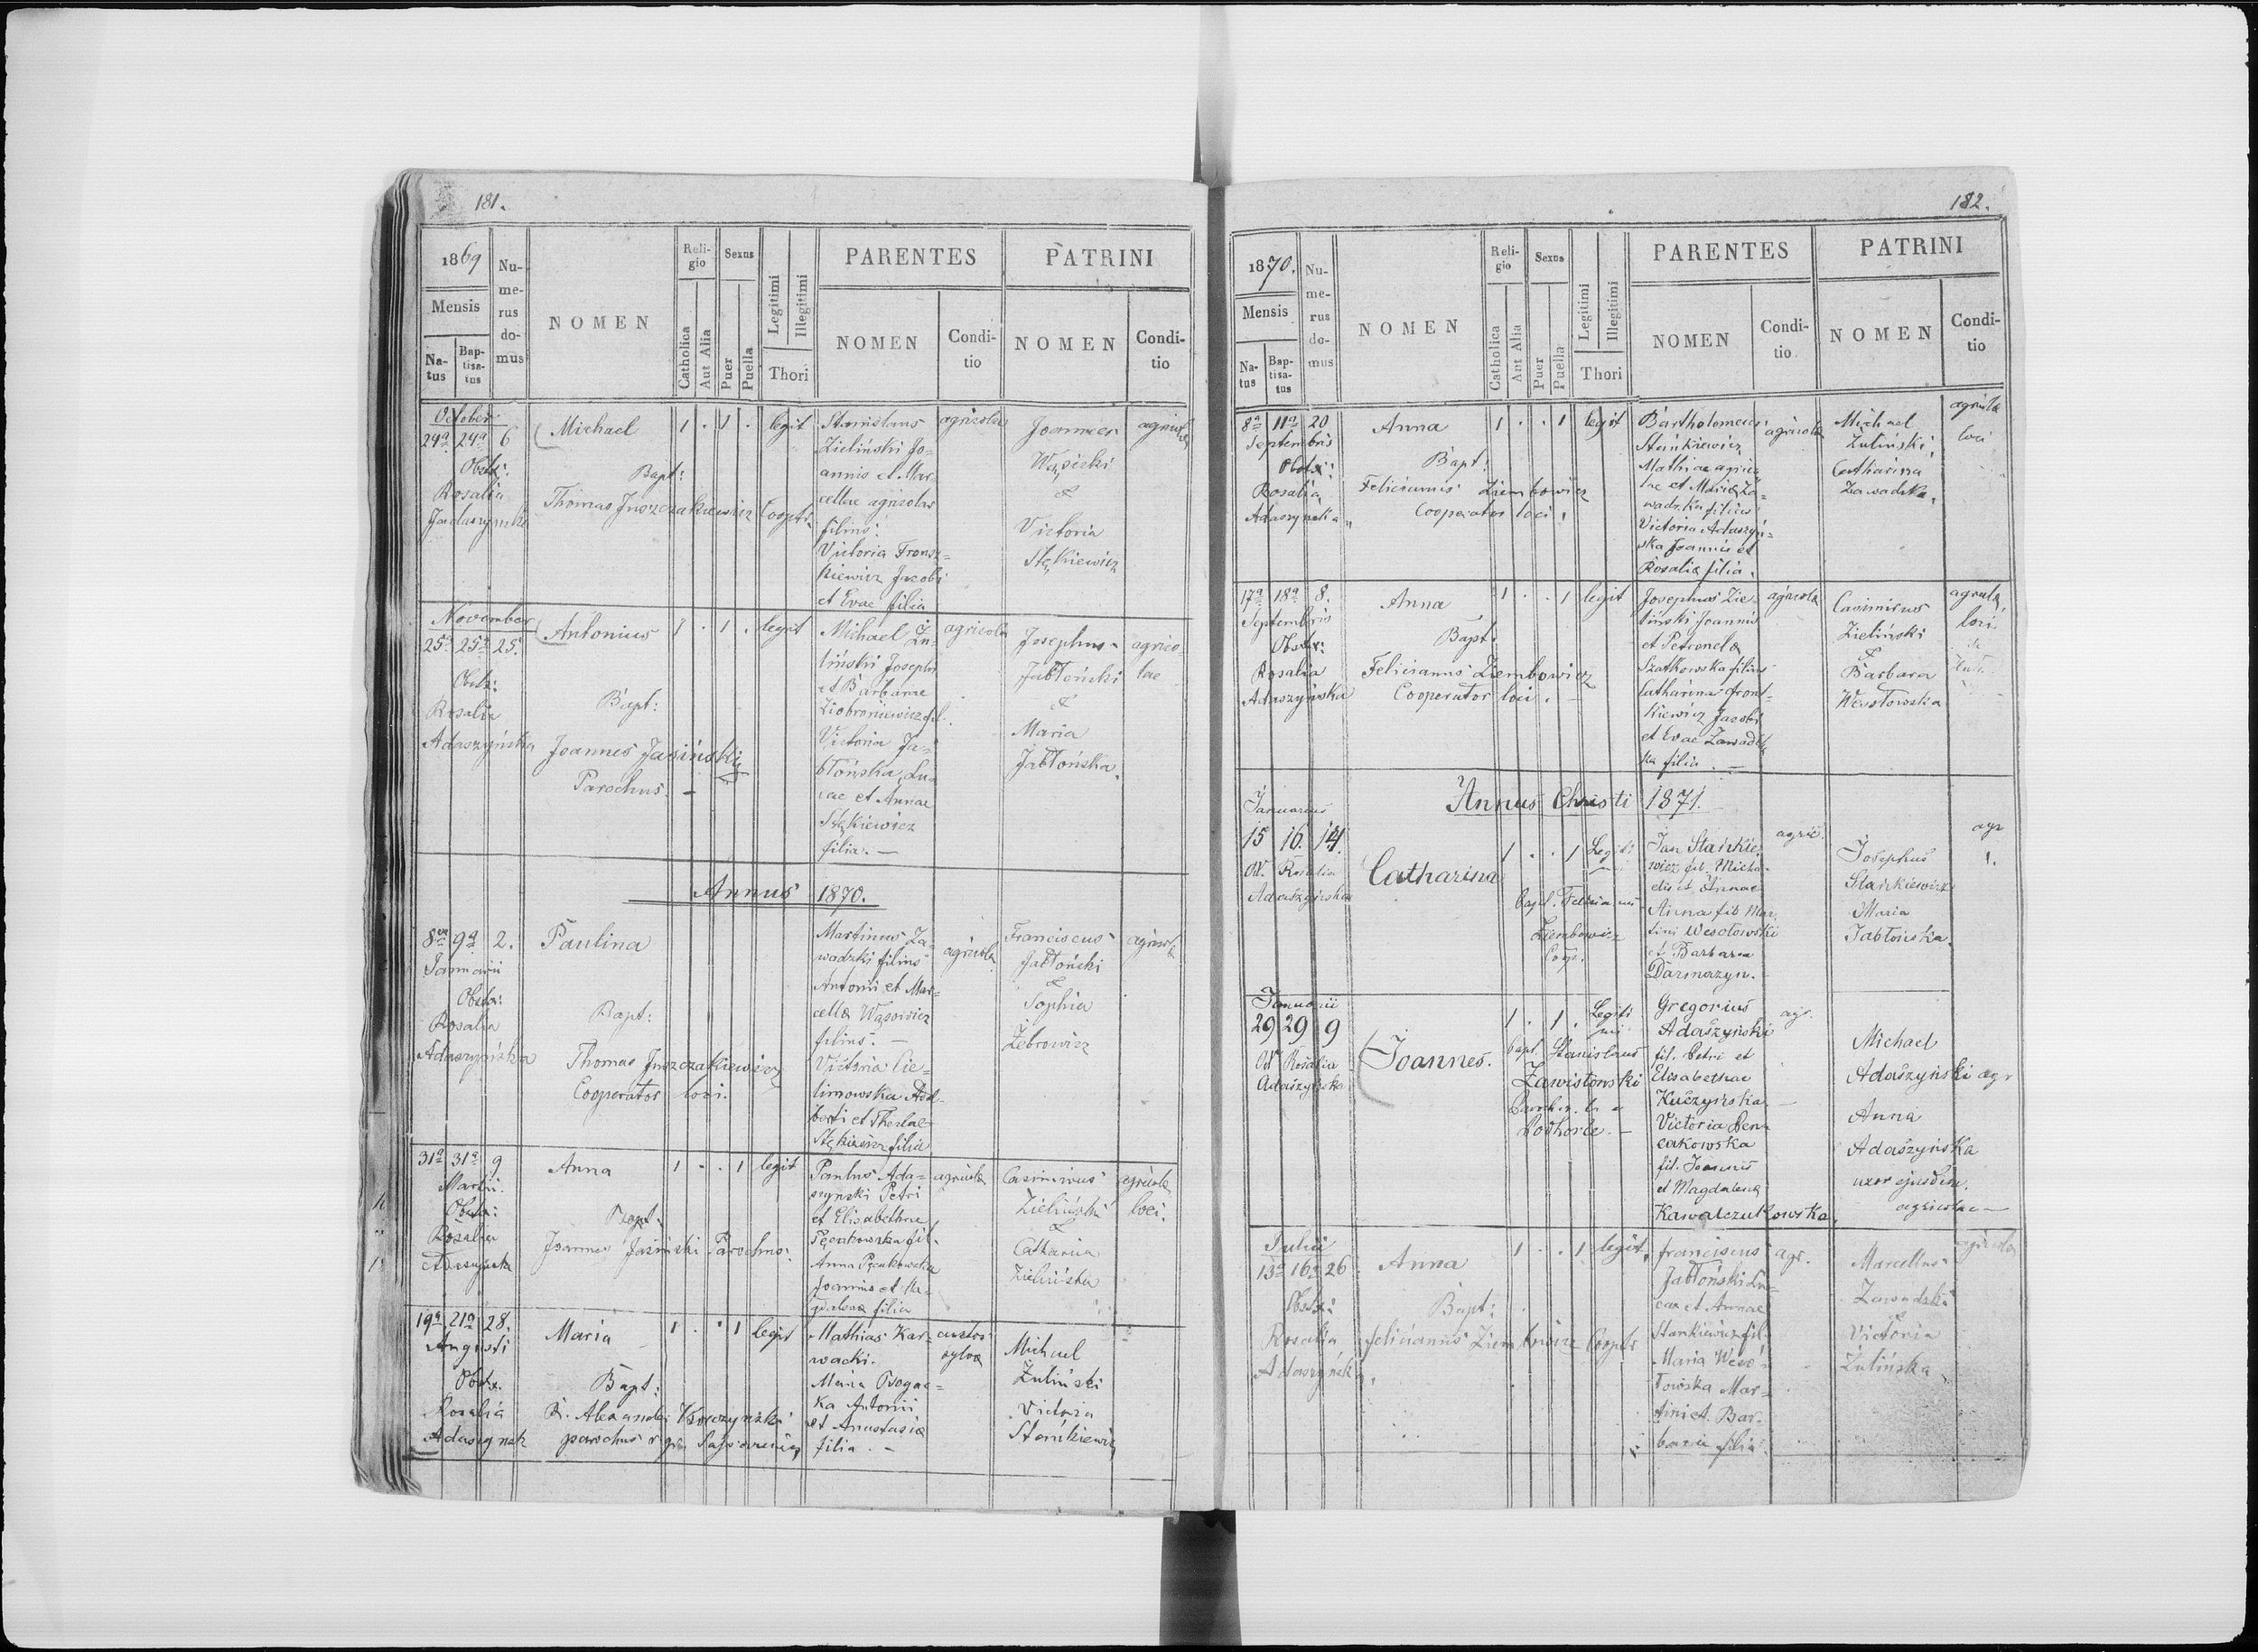 181.
1869
Mensis
Na-
tus
Bap-
tisa-
tus
Nu-
me-
rus
do-
mus
NOMEN
Reli-
gio
Catholica
Aut Alia
Sexus
Puer
Puella
Legitimi
Illegitimi
Thori
PARENTES
NOMEN
Condi-
tio
PATRINI
NOMEN
Condi-
tio
October
24a 24a 6
Obstr:
Rosalia
Michael
Bapt:
Thomas Juszczakiewicz Cooptr
1 . 1 . legit
Stanislaus
Zieliński Jo-
annis et Mar
cellae agricolar
filius:
Victoria Fronsz-
kiewicz Jacobi
et Evae filia
agricola
Joannes
Wąsicki
&
Victoria
Stękiewicz
November
25a 25a 25.
Obstr:
Rosalia
Adaszyńska
Antonius
Bapt:
Joannes Jasiński
Parochus. -
1 . 1 . legit
Michael Żu-
liński Josephi
et Barbarae
Victoria Ja-
błońska, Lu-
cae et Annae
Stękiewicz
filia. -
agricola
Josephus
Jabłoński
&
Maria
Jabłońska.
agrico-
lae
Annus 1870.
8va 9a 2.
Januarii
Obstr:
Rosalia
Adaszyńska
Paulina
Bapt:
Thomas Juszczakiewicz
Cooperator loci.
Martinus Za-
wadzki filius
Antonii et Mar-
cellae Wąsowicz
filius. -
Victoria Cie-
limowska Adal-
berti et Theclae
Stękiewicz filia
agricola
Franciscus
Jabłoński
&
Sophia
Żebrowicz
31a 31a 9
Martii.
Obstr:
Rosalia
Anna
Bapt:
Joannes Jasiński Parochus.
1 . . 1 legit
Paulus Ada-
szynski Petri
et Elisabethae
Anna Pęcakowska
Joannis et Ma-
gdalenae filia
agricola
Casimirus
Zieliński
&
Catharina
Zielińska
agricola
loci.
19a 21a 28.
Augusti
Obstr.
Rosalia
Maria
Bapt:
R. Alexander
parochus
1 . . 1 legit
Mathias Kar-
wacki.
Maria Bogac-
ka Antonii
et Anastasiae
filia. -
custos
sylvae
Michael
Żuliński
Victoria
Stańkiewicz
182.
1870.
Mensis
Na-
tus
Bap-
tisa-
tus
Nu-
me-
rus
do-
mus
NOMEN
Reli-
gio
Catholica
Aut Alia
Sexus
Puer
Puella
Legitimi
Illegitimi
Thori
PARENTES
NOMEN
Condi-
tio
PATRINI
NOMEN
Condi-
tio
8a 11a 20
Septembris
Obstr:
Rosalia
Adaszynska
Anna
Bapt:
Felicianus Ziembowicz
Cooperator loci.
1 . . 1 legit
Bartholomeus
Stańkiewicz
Mathiae agrico-
lae et Mariae Za-
wadzka filius
Victoria Adaszyń-
ska Joannis et
Rosaliae filia.
agricola
Michael
Żuliński,
Catharina
Zawadzka.
agricola
loci
17a 18a 8.
Septembris
Obstr:
Rosalia
Adaszyńska
Anna
Bapt.
Felicianus Ziembowicz
Cooperator loci. -
1 . . 1 legit
Josephus Zie-
liński Joannis
et Petronela
Szatkowska filius
Catharina Front-
kiewicz Jacobi
et Evae Zawadz-
ka filia. -
agricola
Casimirus
Zieliński
&
Barbara
Wesołowska
agricola
loci.
Annus Christi 1871.
Januarius
15 16. 14.
Ob. Rosalia
Adaszyńska
Catharina
1 . . 1
Bapt. Felicianus
Ziembowicz
Coop.
Jan Stańkie
wicz fil. Micha-
elis et Annae
Anna fil Mar-
tini Wesołowski
et Barbara
agric.
Josephus
Stańkiewicz
Maria
Jabłońska.
agr
l.
Januarii
29 29 9
Ob Rosalia
Adaszyńska
Joannes.
1 . 1 . Legiti
mi
Bapt. Stanislaus
Zawistowski
Podhorce. -
Gregorius
Adaszyński
fil. Petri et
Elisabethae
Kuczyńska -
Victoria Pen-
cakowska
fil. Joannis
et Magdalena
Kawalczukowska.
agr.
Michael
Adaszyński agr
Anna
Adaszyńska
uxor ejusdem.
agricolae -
Julii
13a 16a 26
Obstr:
Rosalia
Adaszyńska.
Anna
Bapt:
Felicianus Ziembowicz Cooptr
1 . . 1 legit.
Franciscus
Jabłoński Lu-
cae et Annae
Stankiewicz fil.
Maria Weso-
łowska Mar-
tini et Bar-
barae filia.
agr.
Marcellus
Zawadzki
Victoria
Żulińska
agricola